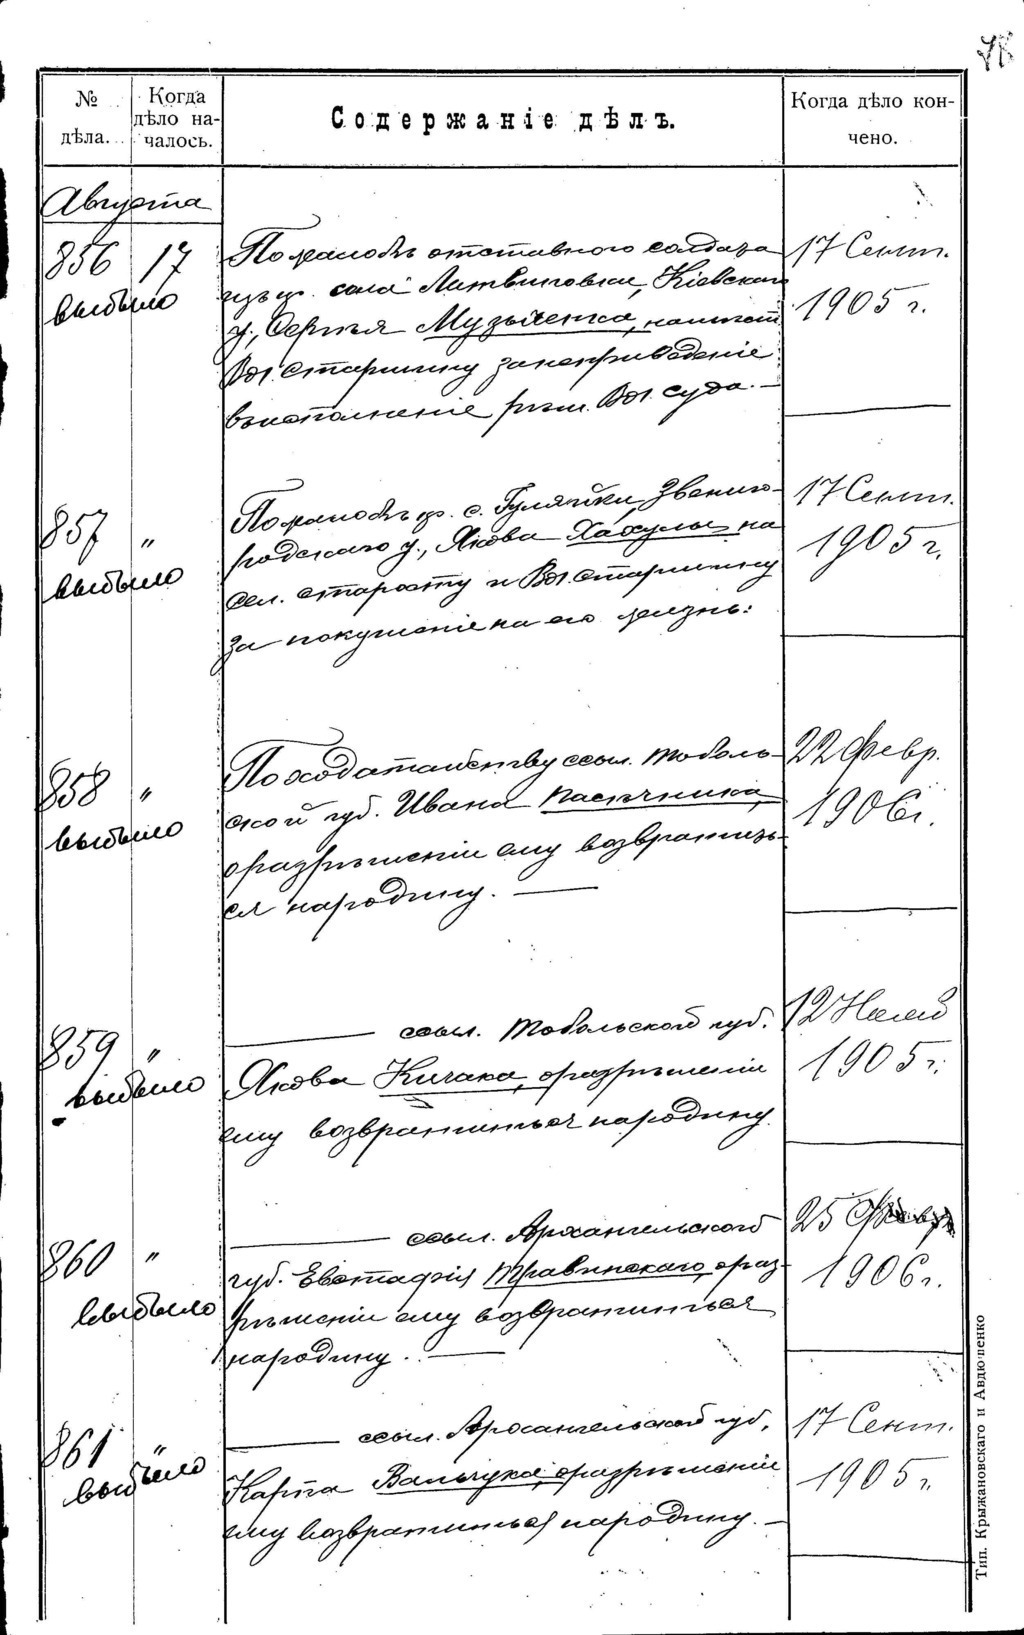 № дѣла.
Когда дѣло началось.
Содержаніе дѣлъ.
Когда дѣло кончено.
Августа
856 17 По жалобѣ отставного солдата 17 Сент.
выбыло изъ кр. села Литвиновки, Кіевскаго 1905 г.
у., Сергѣя Музыченка, на мѣст.
Вол. Старшину за неприведеніе
въ исполненіе рѣш. Вол. суда. —
857 " По жалобѣ кр. с. Гуляйки Звениго- 17 Сент.
выбыло родскаго у., Якова Хахулы на 1905 г.
Сел. старосту и Вол. Старшину
за покушеніе на его жизнь:
858 " По ходатайству ссыл. Тоболь- 22 Февр.
выбыло ской губ. Ивана Пасѣчника, 1906 г.
о разрѣшеніи ему возвратить-
ся на родину. —
859 " — ссыл. Тобольской губ. 12
выбыло Якова Кичака, о разрѣшеніи 1905 г.
ему возвратиться на родину.
860 " — ссыл. Архангельской 25 Февр
выбыло губ. Евстафія Травинскаго, о раз- 1906 г.
рѣшеніи ему возвратиться
на родину. —
861 " — ссыл. Архангельской губ. 17 Сент.
выбыло Карпа Вальчука, о разрѣшеніи 1905 г.
ему возвратиться на родину. —
Тип. Крыжановскаго и Авдюшенко